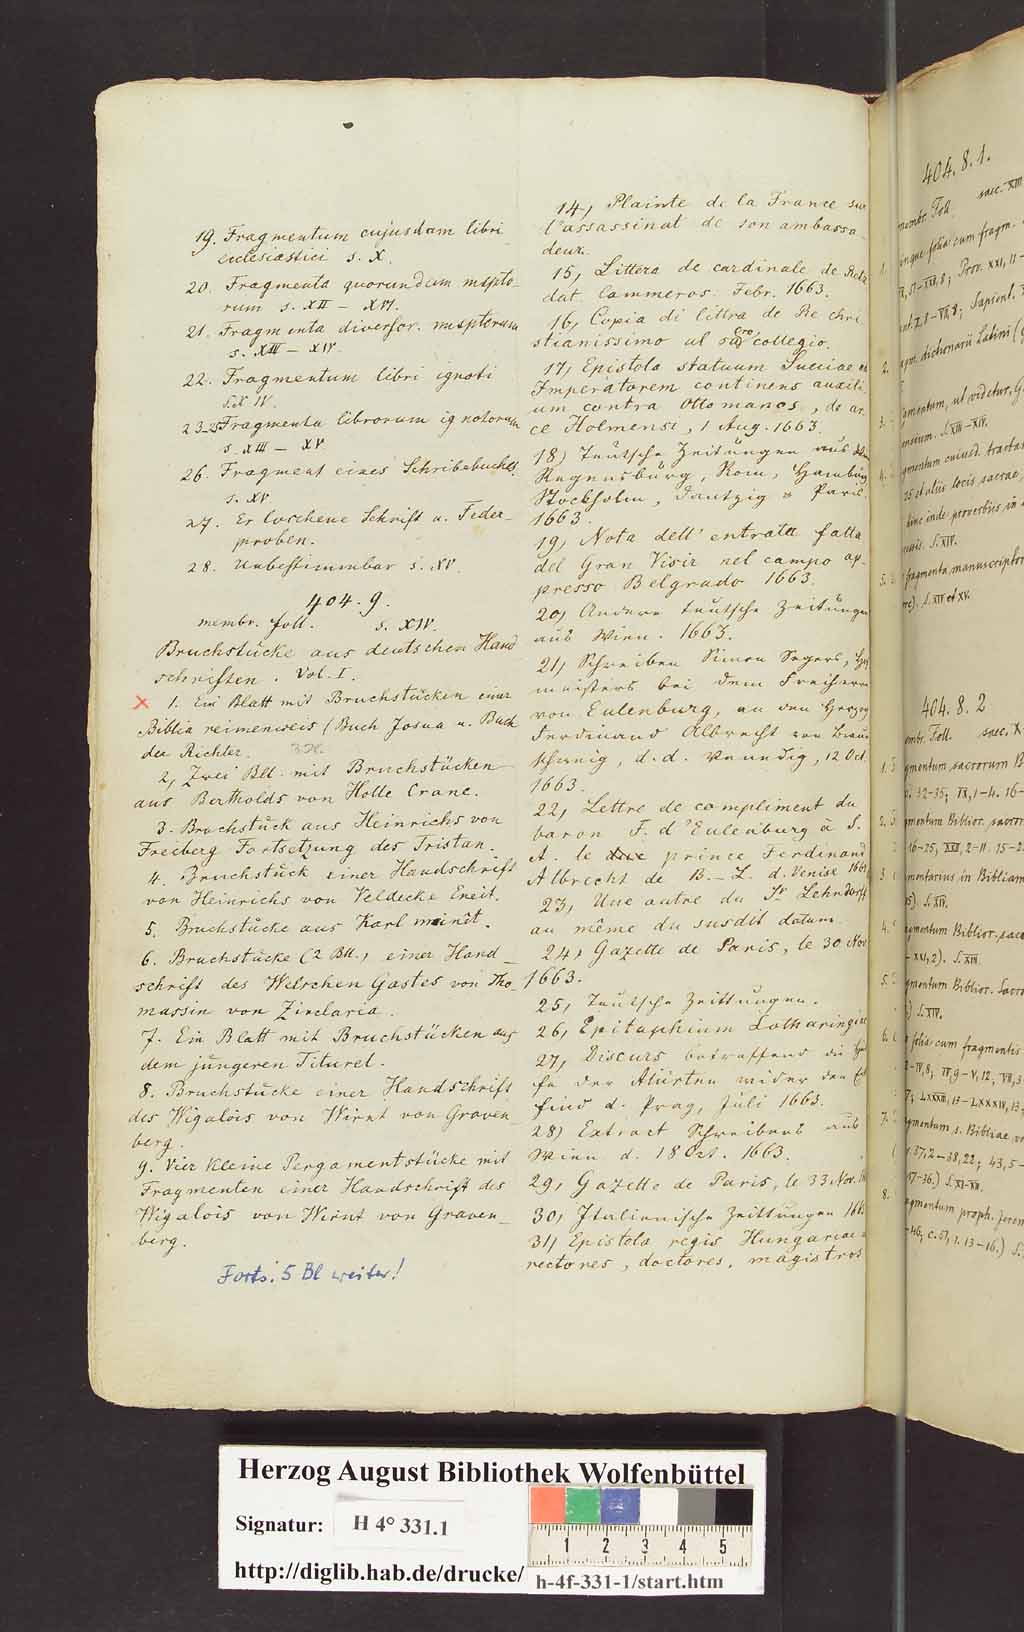 19. Fragmentum cujusdam libri
ecclesiastici s. X.
20. Fragmenta quorundum mspto-
rum s. XII – XVI.
21. Fragmenta diversor. msptorum
s. XIII – XIV.
22. Fragmentum libri ignoti
s. XIV.
23-25 Fragmenta librorum ignotorum
s. XIII – XV
26. Fragment eines Schreibebuches
s. XV
27. Erloschene Schrift u. Feder-
proben.
28. Unbestimmbar s. XV.
404. 9.
membr. foll. s. XIV.
Bruchstücke aus deutschen Hand
schriften. Vol. I.
× 1. Ein Blatt mit Bruchstücken einer
Biblia reimenweis (Buch Josua u. Buch
der Richter.
2, Zwei Bll. mit Bruchstücken
aus Bertholds von Holle Crane.
3. Bruchstück aus Heinrichs von
Freiberg Fortsetzung des Tristan.
4. Bruchstück einer Handschrift
von Heinrichs von Veldecke Eneit.
5. Bruchstücke aus Karl meinet.
6. Bruchstücke (2 Bll.) einer Hand-
schrift des Welschen Gastes von Tho-
massin von Zirclaria.
7. Ein Blatt mit Bruchstücken aus
dem jüngeren Titurel.
8. Bruchstücke einer Handschrift
des Wigalois von Wirnt von Graven
berg.
9. Vier kleine Pergamentstücke mit
Fragmenten einer Handschrift des
Wigalois von Wirnt von Graven-
berg.
Forts. 5 Bl weiter!
14, Plainte de la France sur
l'assassinat de son ambassa-
deur.
15, Littera de cardinale de
dat. Commeros. Febr. 1663.
16, Copia di littra de Re chri
stianissimo al sacro collegio.
17, Epistola statuum Sueciae
Imperatorem continens auxili
um contra Ottomanos, de ar
ce Holmensi, 1 Aug. 1663.
18) Teutsche Zeitungen aus
Regensburg, Rom, Hamburg
Stockholm, Dantzig u Paris.
1663.
19, Nota dell' entrata fatta
del Gran Visir nel campo ap-
presso Belgrado 1663.
20, Andere teutsche Zeitungen
aus Wien. 1663.
21, Schreiben Simon Segers, Hof
meisters bei dem Freiherrn
von Eulenburg, an den Herzog
Ferdinand Albrecht von Braun
schweig, d.d. Venedig, 12 Oct.
1663.
22, Lettre de compliment du
baron F. d'Eulenburg à S.
A. le prince Ferdinand
Albrecht de B.-L. d. Venise 1663
23, Une autre du Sr Lehndorff
au même du susdit datum.
24, Gazette de Paris, le 30 Nov
1663.
25, Teutsche Zeittungen.
26, Epitaphium Lotharingi
27, Discurs betreffend die
fe der Alürten wider den
feind d. Prag, Juli 1663.
28) Extract Schreibens aus
Wien d. 18 Oct. 1663.
29, Gazette de Paris, le 33 Nov.
30, Italienische Zeittungen 1663
31, Epistola regis Hungariae
rectores, doctores, magistros
404. 8. 1.
membr. Foll. saec. XIII
folia cum fragm.
Prov. XXI, 11-
Sapient.
2. dictionarii Latini
3. ut videtur,
S. XIII–XIV.
4. cuiusd. tractat
et aliis locis sacrae
hinc inde proverbiis, in
S. XIV.
5. fragmenta manuscriptor
S. XIV et XV.
404. 8. 2
membr. Foll. saec. X
1. gmentum sacrorum B
32-35; IX, 1-4. 16-
2. gmentum Biblior. sacror
16-25, XIII, 2-11. 15-2
3. mmentarius in Bibliam
S. XIV.
4. gmentum Biblior. sacr
XXI, 2). S. XIII
5. gmentum Biblior. Sacro
S. XIV.
6. folia cum fragmentis
2-IV, 8, IV, 9-V, 12, VII, 3
LXXXII, 13-LXXXIV, 13-
7. gmentum s. Bibliae v
37, 2-38, 22; 43, 5-
17-36.) S. XI-XII.
8. gmentum proph. Jerem
46; c. 51, 1. 13-16.) S.
Herzog August Bibliothek Wolfenbüttel
Signatur: H 4° 331.1
1 2 3 4 5
http://diglib.hab.de/drucke/ h-4f-331-1/start.htm